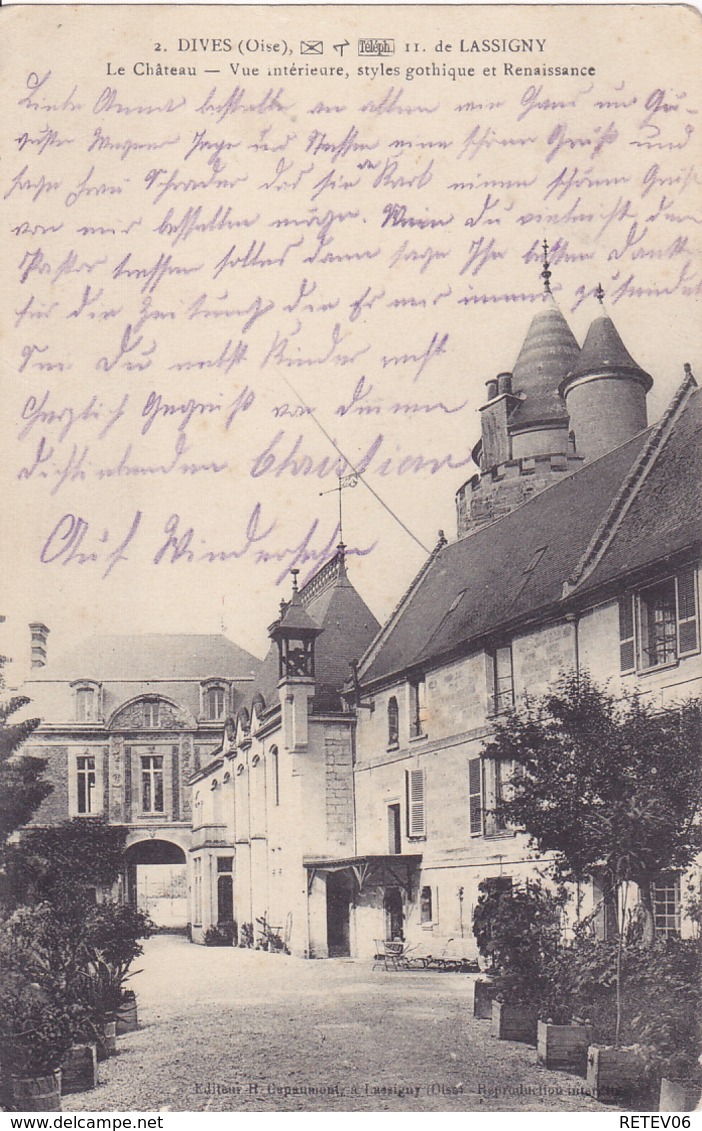 2. DIVES (Oise), Téléph. 11. de LASSIGNY
Le Château — Vue intérieure, styles gothique et Renaissance
Liebe Anna bestelle an allen wie Hans und
Wegener Tage und eine schönen Gruß und
sage Frau Schrader das sie Karl einen schönen Gruß
von mir bestellen möge. Wenn Du vielleicht den
Pastor treffen solltest dann sage Ihn besten Dank
für die Zeitung die Er mir immer zusendet
Sei Du nebst Kinder recht
herzlich gegrüßt von deinen
dichliebenden Christian
Auf Wiedersehn
Editeur H. Capaumont, à Lassigny (Oise) - Reproduction interdite
RETEV06